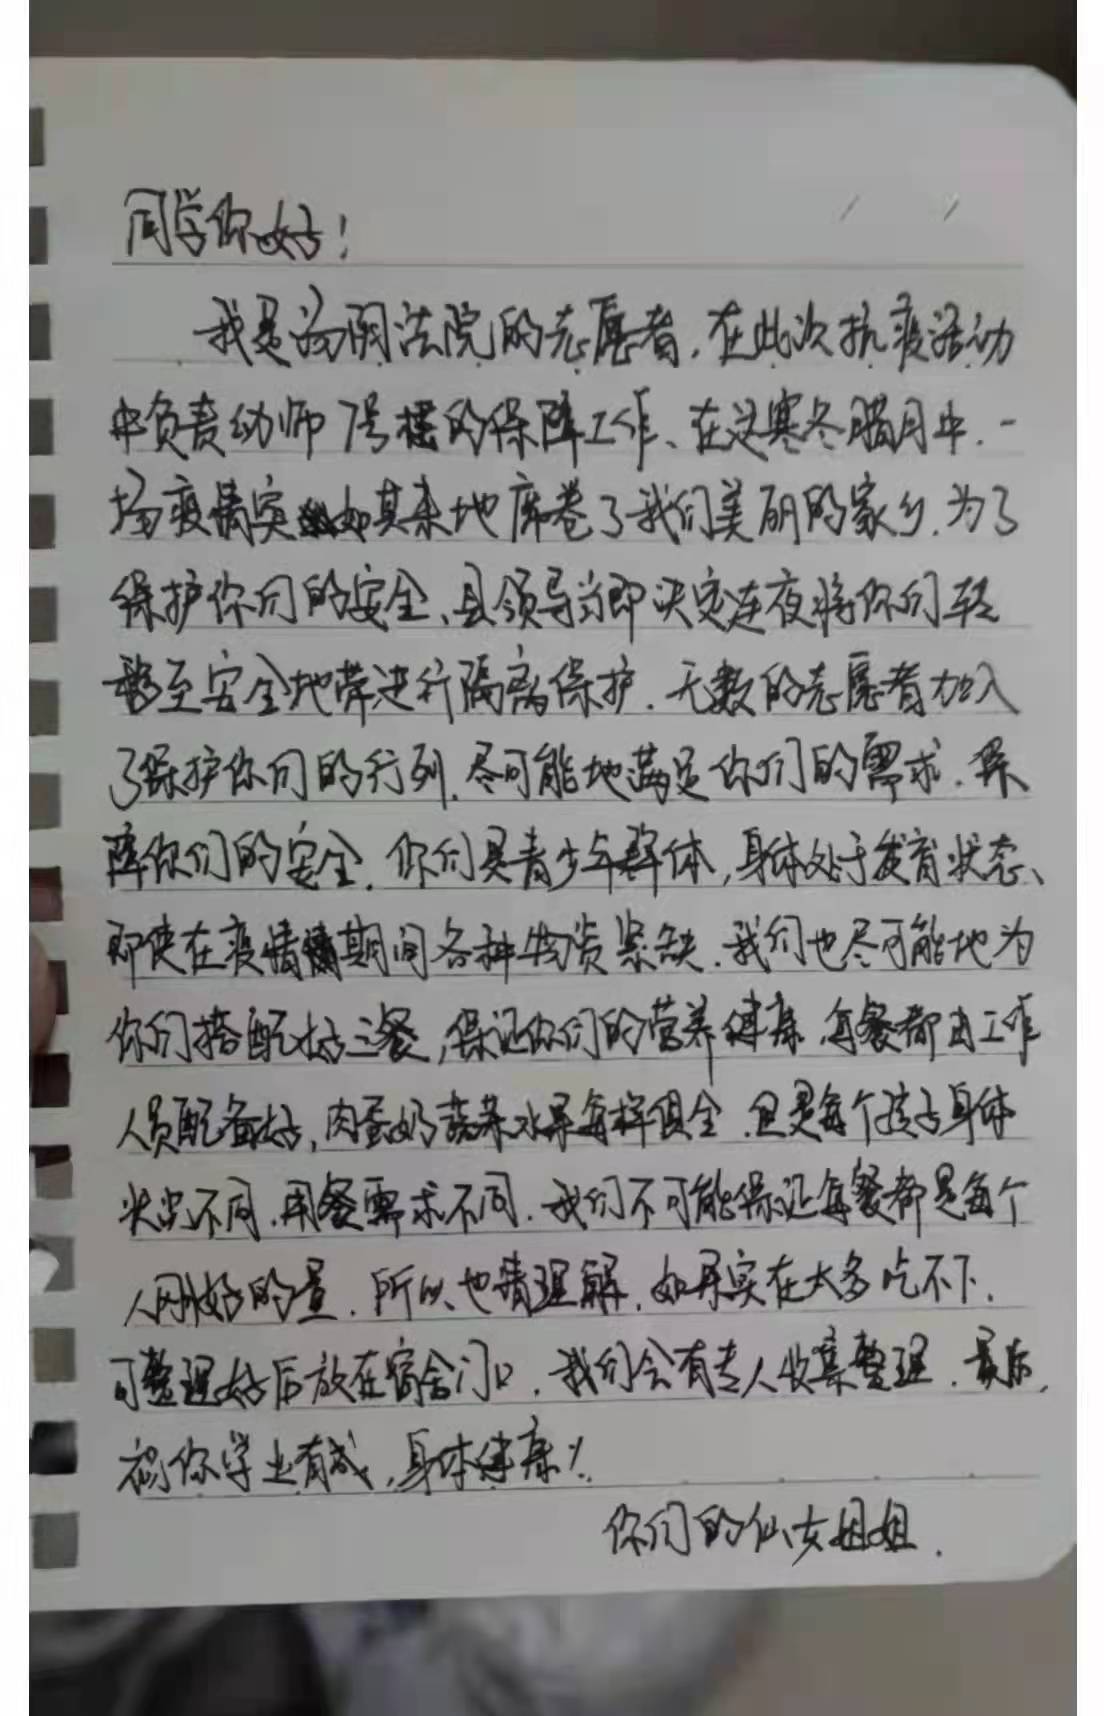 同学你好！
我是汤阴法院的志愿者，在此次抗疫活动
中负责幼师7号楼的保障工作、在这寒冬腊月中，一
场疫情突如其来地席卷了我们美丽的家乡，为了
保护你们的安全、县领导当即决定连夜将你们转
移至安全地带进行隔离保护．无数的志愿者加入
了保护你们的行列，尽可能地满足你们的需求，保
障你们的安全．你们是青少年群体，身体处于发育状态、
即使在疫情期间各种物资紧缺．我们也尽可能地为
你们搭配好三餐，保证你们的营养健康，每餐都由工作
人员配备好，肉蛋奶蔬菜水果每样俱全．但是每个孩子身体
状况不同．用餐需求不同．我们不可能保证每餐都是每个
人刚好的量．所以也请理解．如果实在太多吃不下、
可整理好后放在宿舍门口，我们会有专人收集整理．最后，
祝你学业有成，身体健康！
你们的仙女姐姐．